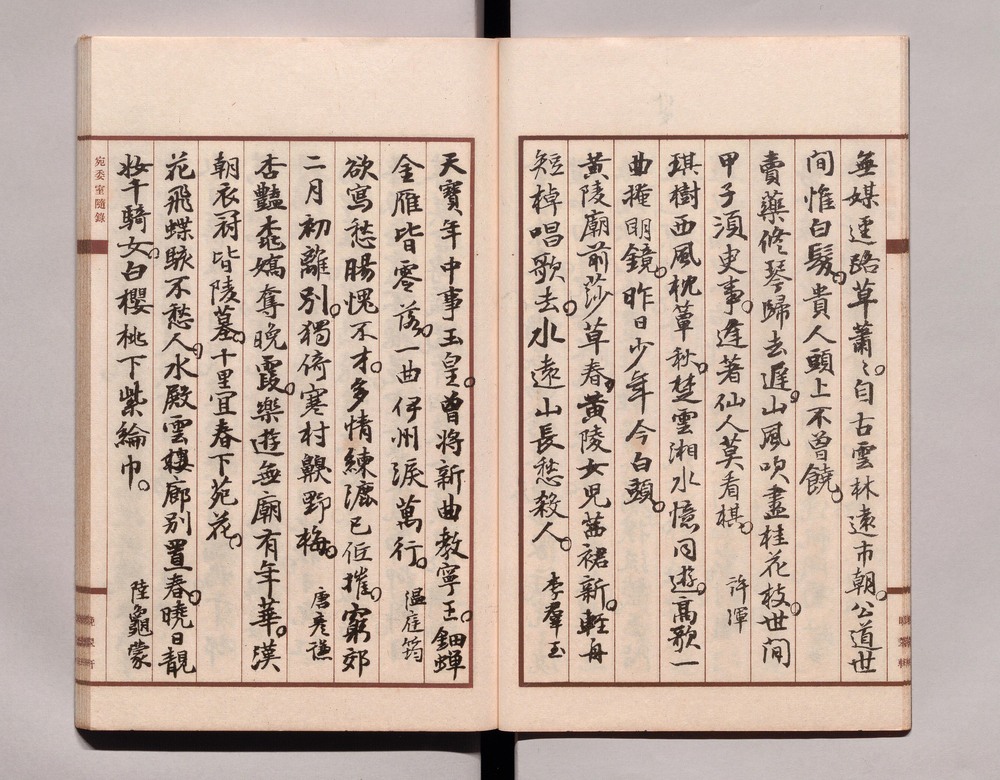 無媒逕路草蕭〻。自古雲林遠市朝。公道世
間惟白髮。貴人頭上不曾饒。
賣藥修琴歸去遲。山風吹盡桂花枝。世間
甲子須臾事。逢著仙人莫看棋。 許渾
琪樹西風枕簟秋。楚雲湘水憶同遊。高歌一
曲掩明鏡。昨日少年今白頭。
黃陵廟前莎草春。黃陵女兒茜裙新。輕舟
短棹唱歌去。水遠山長愁殺人。 李羣玉
天寶年中事玉皇。曾將新曲教寧王。鈿蟬
金雁皆零落。一曲伊州淚萬行。 溫庭筠
欲寫愁腸愧不才。多情練漉已低摧。窮郊
二月初離別。獨倚寒村齅野梅。 唐彥謙
杏豔桃嬌奪晚霞。樂遊無廟有年華。漢
朝衣冠皆陵墓。十里宜春下苑花。
花飛蝶駭不愁人。水殿雲樓廊別置春。曉日靚
妝千騎女。白櫻桃下紫綸巾。 陸龜蒙
宛委室隨錄